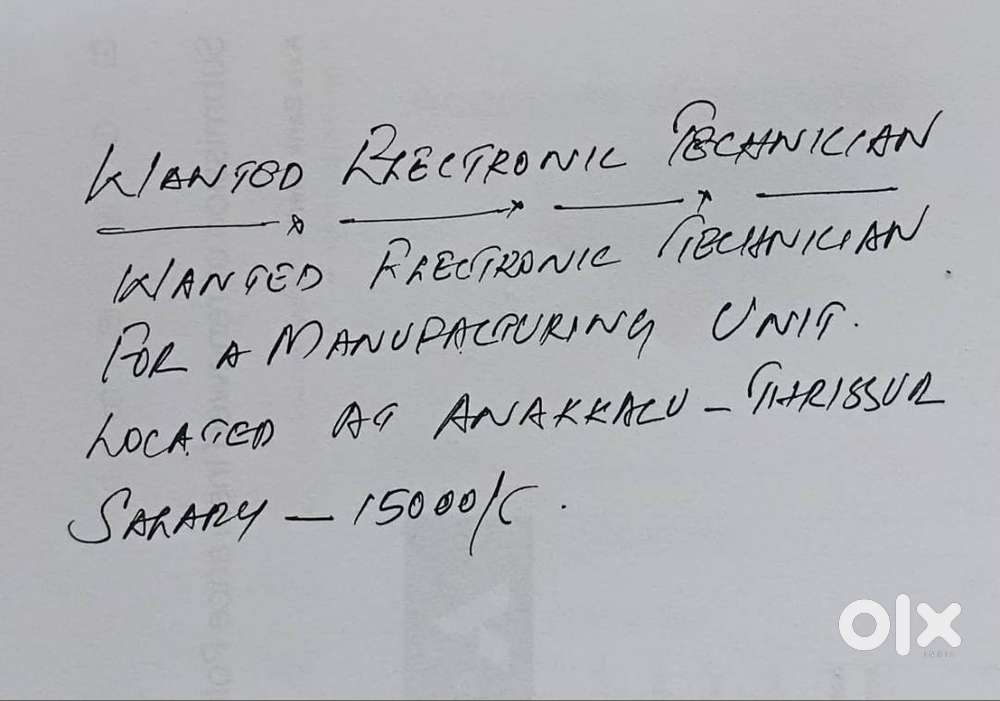 WANTED ELECTRONIC TECHNICIAN
WANTED ELECTRONIC TECHNICIAN
FOR A MANUFACTURING UNIT.
LOCATED AT ANAKKALU - THRISSUR
SALARY - 15000/-.
olx
INDIA